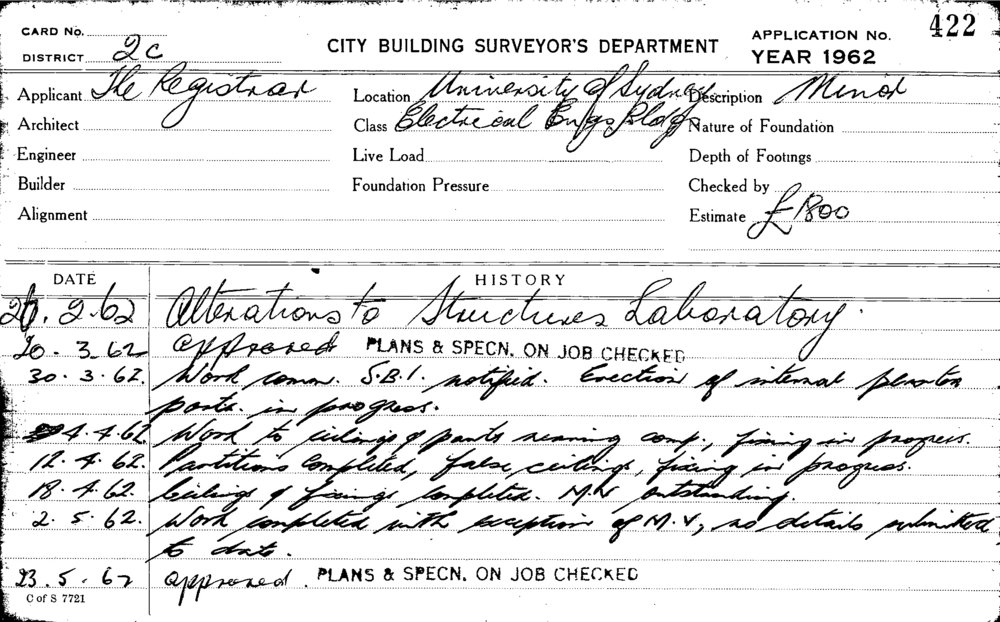 CARD No.
DISTRICT 2c
CITY BUILDING SURVEYOR'S DEPARTMENT
APPLICATION No. 422
YEAR 1962
Applicant The Registrar
Location University of Sydney
Description Minor
Architect
Class Electrical Engs Bldg
Nature of Foundation
Engineer
Live Load
Depth of Footings
Builder
Foundation Pressure
Checked by
Alignment
Estimate £1800
DATE HISTORY
26.2.62 Alterations to Structures Laboratory.
20.3.62 Approved PLANS & SPECN. ON JOB CHECKED
30.3.62. Work comm. S.B.I. notified. Erection of internal
parts. in progress.
4.4.62 Work to ceilings & parts nearing comp., fixing in progress.
12.4.62. Partitions completed, false ceilings, fixing in progress.
18.4.62. Ceilings & fixings completed. M.V outstanding.
2.5.62. Work completed with exception of M.V, no details submitted
to date.
23.5.62 Approved. PLANS & SPECN. ON JOB CHECKED
C of S 7721